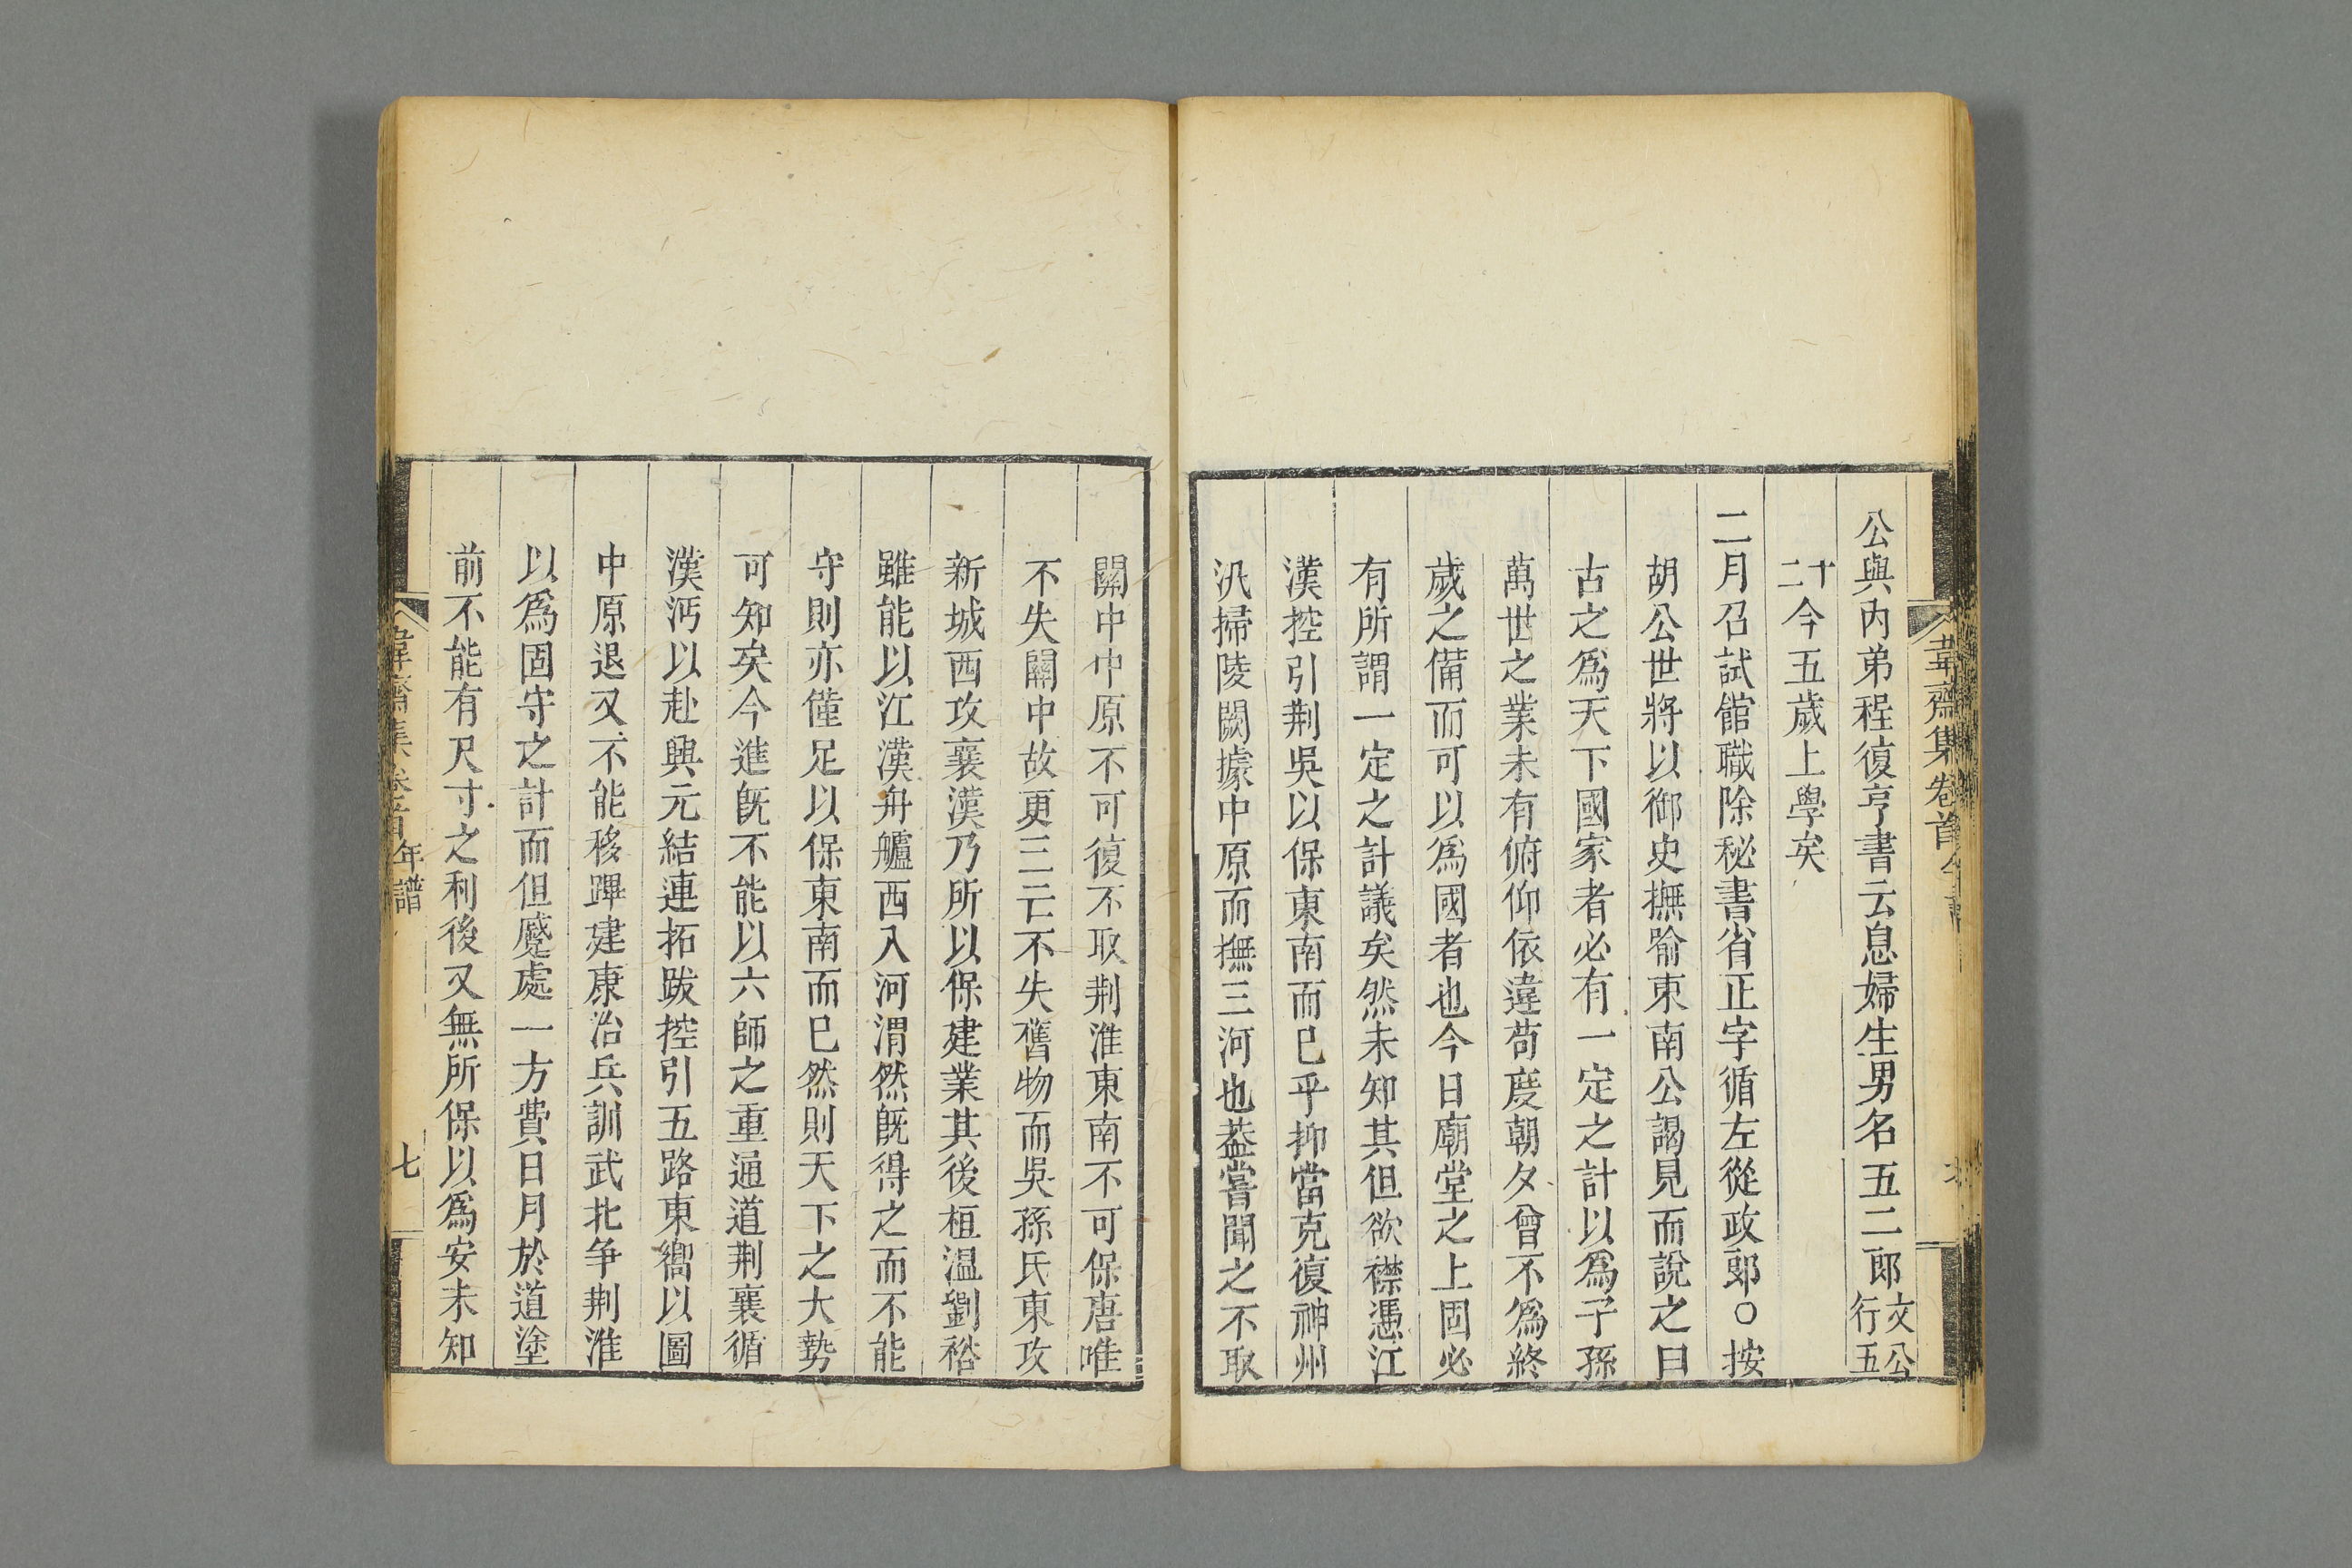 韋齋集卷首 年譜
公與內弟程復亨書云息婦生男名五二郎文公行五
十二今五歲上學矣
二月召試館職除秘書省正字循左從政郎〇按
胡公世將以御史撫喻東南公謁見而說之曰
古之爲天下國家者必有一定之計以爲子孫
萬世之業未有俯仰依違苟度朝夕曾不爲終
歲之備而可以爲國者也今日廟堂之上固必
有所謂一定之計議矣然未知其但欲襟憑江
漢控引荆吳以保東南而已乎抑當克復神州
汎掃陵闕據中原而撫三河也葢嘗聞之不取
關中中原不可復不取荆淮東南不可保唐唯
不失關中故更三亡不失舊物而吳孫氏東攻
新城西攻襄漢乃所以保建業其後桓溫劉裕
雖能以江漢舟艫西入河渭然旣得之而不能
守則亦僅足以保東南而已然則天下之大勢
可知矣今進旣不能以六師之重通道荆襄循
漢沔以赴興元結連拓跋控引五路東嚮以圖
中原退又不能移蹕建康治兵訓武北争荆淮
以爲固守之計而但蹙處一方費日月於道塗
前不能有尺寸之利後又無所保以爲安未知
韋齋集卷首 年譜 七